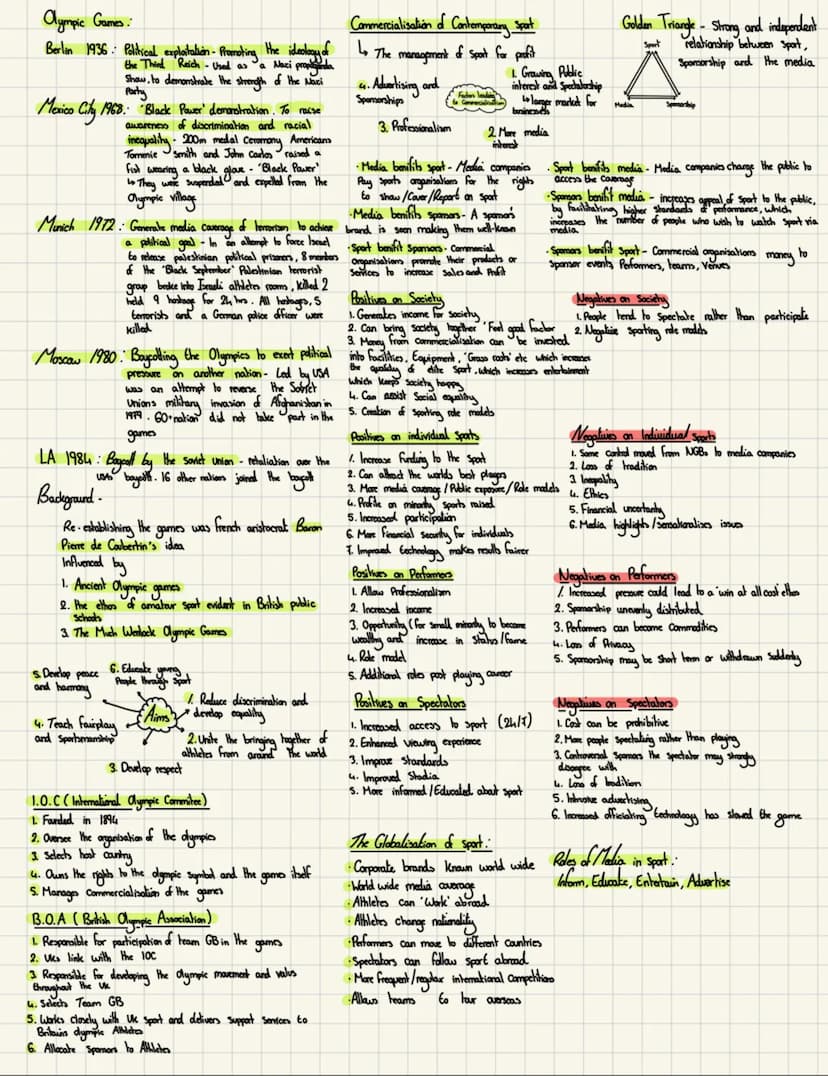 Olympic Games:
Berlin 1936: Political exploitation - Promoting the ideology of
the Third Reich - Used as a Naci propaganda
Show, to demonstrate the strength of the Naci
Party
Mexico City 1968: 'Black Power' demonstration. To raise
awareness of discrimination and racial
inequality - 200m medal Ceromony Americans
Tommie Smith and John Carlos raised a
fist wearing a black glove - 'Black Power'
↳ They were Suspended and expelled from the
Olympic village
Munich 1972: Generate media Coverage of terrorism to achieve
a political goal - In an attempt to force Isreal
to release palestinian political prisoners, 8 members
of the 'Black September' Palestinian terrorist
group broke into Israeli athletes rooms, killed 2
held 9 hostage for 24hrs. All hostages, 5
terrorists and a German police officer were
killed
Moscow 1980: Boycotting the Olympics to exert political
pressure on another nation - Led by USA
was an attempt to reverse the Soviet
Unions military invasion of Afghanistan in
1979. 60+ nation did not take part in the
games
LA 1984: Boycott by the soviet union - retaliation over the
USAs' boycott. 16 other nations joined the boycott
Background -
Re-establishing the games was french aristocrat Baron
Pierre de Coubertin's idea
Influenced by
1. Ancient Olympic games
2. the ethos of amatuar sport evident in British public
schools
3. The Much Wenlock Olympic Games
5. Develop peace
and harmony
6. Educate young
People through Sport
Aims
1. Reduce discrimination and
develop equality
4. Teach fairplay
and Sportsmanship
2. Unite the bringing together of
athletes from around the world
3. Develop respect
I.O.C (International Olympic Commitee)
1. Founded in 1894
2. Oversee the organisation of the olympics
3. Selects host country
4. Owns the rights to the olympic symbol and the games itself
5. Manages Commercialisation of the games
B.O.A (British Olympic Association)
1. Responsible for participation of team GB in the games
2. UKs link with the IOC
3. Responsible for developing the Olympic movement and valus
throughout the UK
4. Selects Team GB
5. Works closely with UK Sport and delivers support services to
Britains olympic Athletes
6. Allocate Sponsors to Athletes
Commercialisation of Contemporary Sport
↳ The management of Sport for profit
4. Advertising and
Sponsorships
Factors leading
to Commercialisation
1. Growing Public
interest and Spectatorship
↳ larger market for
businesses
3. Professionalism
2. More media
interest
· Media benifits sport - Media companies
Pay sports organisations for the rights
to show/Cover/Report on Sport
· Media benifits sponsors - A sponsors
brand is seen making them well-known
· Sport benifits Sponsors - Commercial
Organisations promote their products or
Services to increase Sales and Profit
Positives on Society
1. Generates income for Society
2. Can bring Society together 'Feel good factor'
3. Money from Commercialisation can be invested
into facilities, Equipment, 'Grass roots' etc which increases
the quality of elite Sport, which increases entertainment
which keeps Society happy
4. Can assist Social equality
5. Creation of Sporting role models
Positives on individual Sports
1. Increase funding to the Sport
2. Can attract the worlds best players
3. More media coverage / Public exposure / Role models
4. Profile on minority Sports raised
5. Increased participation
6. More financial Security for individuals
7. Improved technology makes results fairer
Positives on Performers
1. Allow Professionalism
2. Increased income
3. Opportunity (for small minority to become
wealthy and increase in Status/fame
4. Role model
5. Additional roles post playing career
Positives on Spectators
1. Increased access to sport (24/7)
2. Enhanced viewing experience
3. Improve Standards
4. Improved Stadia
5. More informed/Educated about sport
The Globalisation of sport:
· Corporate brands known world wide
· World wide media coverage
· Athletes can 'Work' abroad
· Athletes change nationality
· Performers can move to different countries
· Spectators can follow sport abroad
· More frequent/regular international Competitions
· Allows teams to tour overseas
Golden Triangle - Strong and independent
relationship between sport,
Sponsorship and the media
Sport
Media
Sponsorship
· Sport benifits media - Media companies charge the public to
access the coverage
· Sponsors benifit media - increases appeal of sport to the public,
by facilitating higher standards of performance, which
increases the number of people who wish to watch Sport via
media.
· Sponsors benifit Sport - Commercial organisations money to
Sponsor events, Performers, teams, Venues
Negatives on Society
1. People tend to Spectate rather than participate
2. Negative sporting role models
Negatives on Individual Sports
1. Some Control moved from NGBs to media companies
2. Loss of tradition
3. Inequality
4. Ethics
5. Financial uncertainty
6. Media highlights/sensationalises issues
Negatives on Performers
1. Increased pressure could lead to a 'win at all cost' ethos
2. Sponsorship unevenly distributed
3. Performers can become Commodities
4. Loss of Privacy
5. Sponsorship may be Short term or withdrawn Suddenly
Negatives on Spectators
1. Cost can be prohibitive
2. More people Spectating rather than playing
3. Controversal Sponsors the Spectator may strongly
disagree with
4. Loss of tradition
5. Intrusive advertising
6. Increased officiating technology has slowed the game
Roles of Media in Sport:
Inform, Educate, Entertain, Advertise